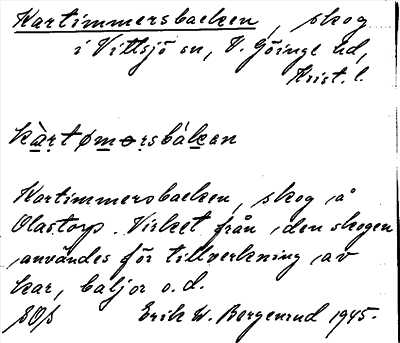 Kartimmersbacken, skog
i Vittsjö sn, V. Göinge hd,
Krist. l.
kàrtømərsbákən
Kartimmersbacken, skog å
Olastorp. Virket från den skogen
användes för tillverkning av
kar, baljor o.d.
Erik W. Bergenrud 1945.